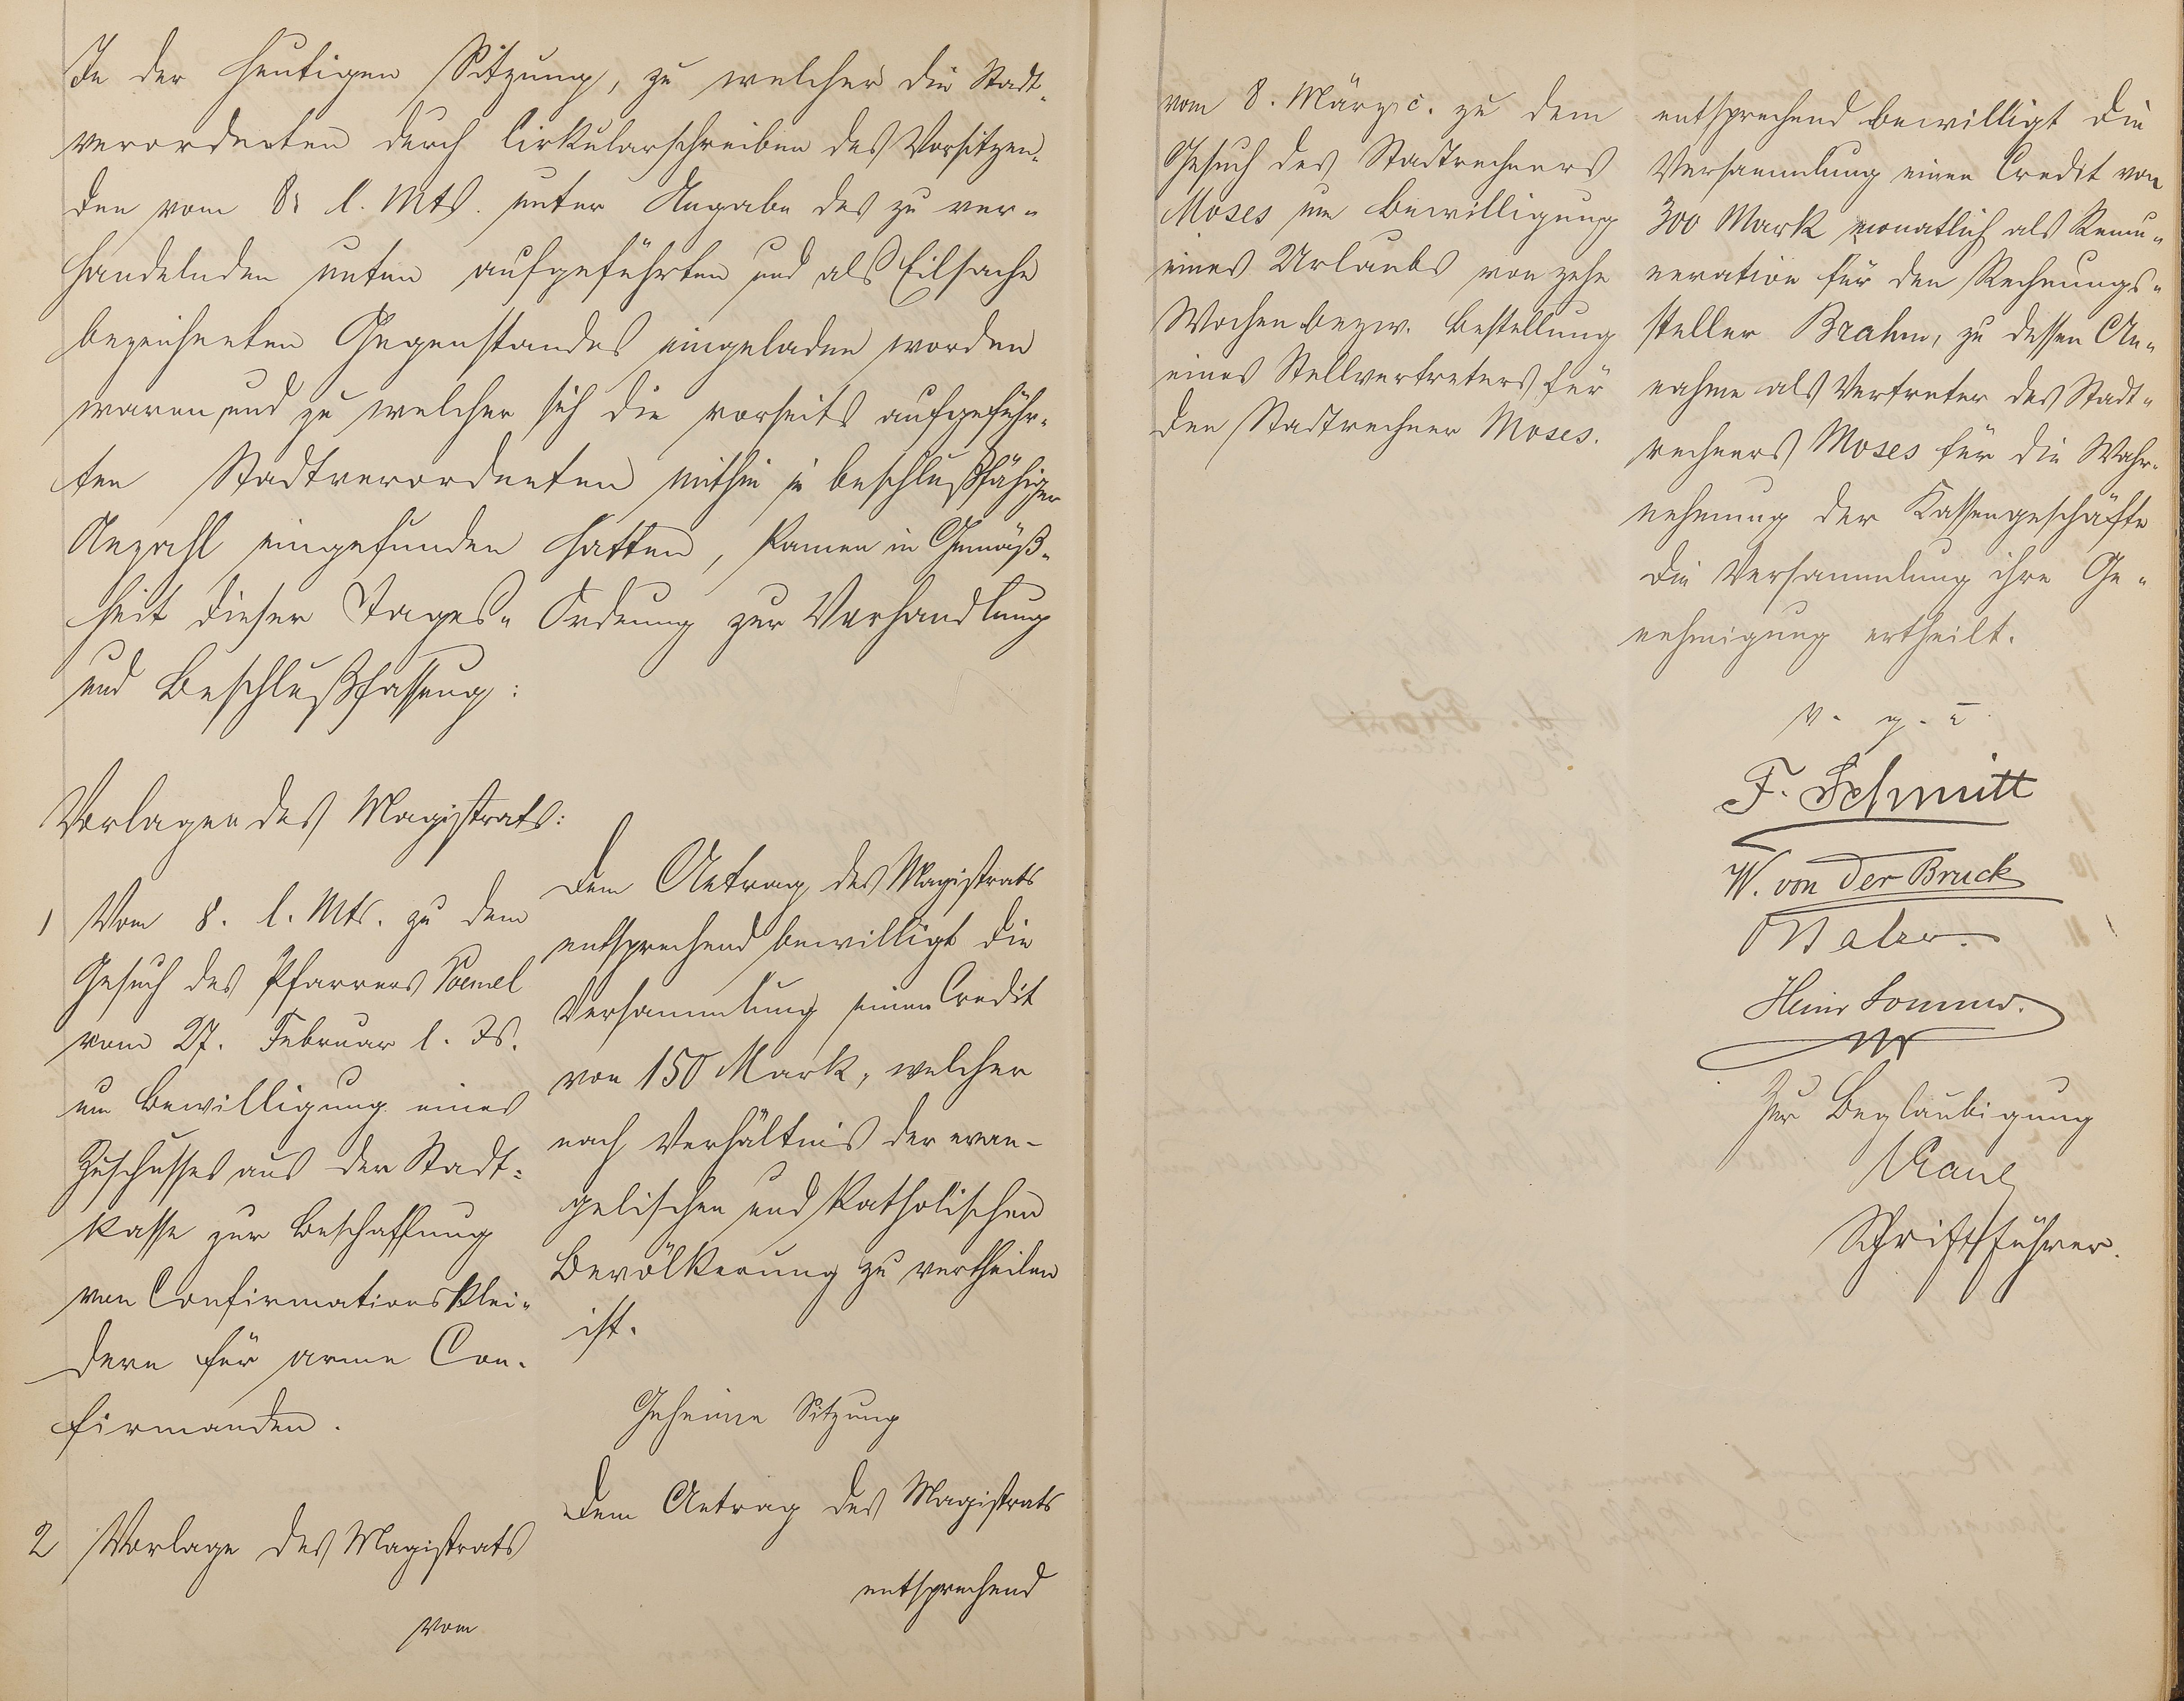 In der heutigen Sitzung, zu welcher die Stadt-
verordneten durch Cirkularschreiben des Vorsitzen-
den vom 8. l. Mts. unter Angabe des zu ver-
handelnden unten aufgeführten und als Eilsache
bezeichneten Gegenstandes eingeladen worden
waren und zu welcher sich die vorseits aufgeführ-
ten Stadtverordneten mithin in beschlußfähiger
Anzahl eingefunden hatten, kamen in Gemäß-
heit dieser Tages-Ordnung zur Verhandlung
und Beschlußfassung:
Vorlagen des Magistrats:
1 Vom 8. l. Mts. zu dem
Gesuch des Pfarrers
vom 27. Februar l. Js.
um Bewilligung eines
Zuschusses aus der Stadt-
kasse zur Beschaffung
von Confirmationsklei-
dern für arme Con-
firmanden.
Dem Antrag des Magistrats
entsprechend bewilligt die
Versammlung einen Credit
von 150 Mark, welcher
nach Verhältnis der evan-
gelischen und katholischen
Bevölkerung zu vertheilen
ist.
Geheime Sitzung
2 Vorlage des Magistrats
vom
Dem Antrag des Magistrats
entsprechend
vom 8. März c. zu dem
Gesuch des Stadtrechners
Moses um Bewilligung
eines Urlaubs von zehn
Wochen bezw. Bestellung
eines Stellvertreters für
den Stadtrechner Moses.
entsprechend bewilligt die
Versammlung einen Credit von
300 Mark monatlich als Remu-
neration für den Rechnungs-
steller Brahm, zu dessen An-
nahme als Vertreter des Stadt-
rechners Moses für die Wahr-
nehmung der Kassengeschäfte
die Versammlung ihre Ge-
nehmigung ertheilt.
v. g. u.
F. Schmitt
W. von der Bruck
Heinr Sommer.
Zur Beglaubigung
Schriftführer.